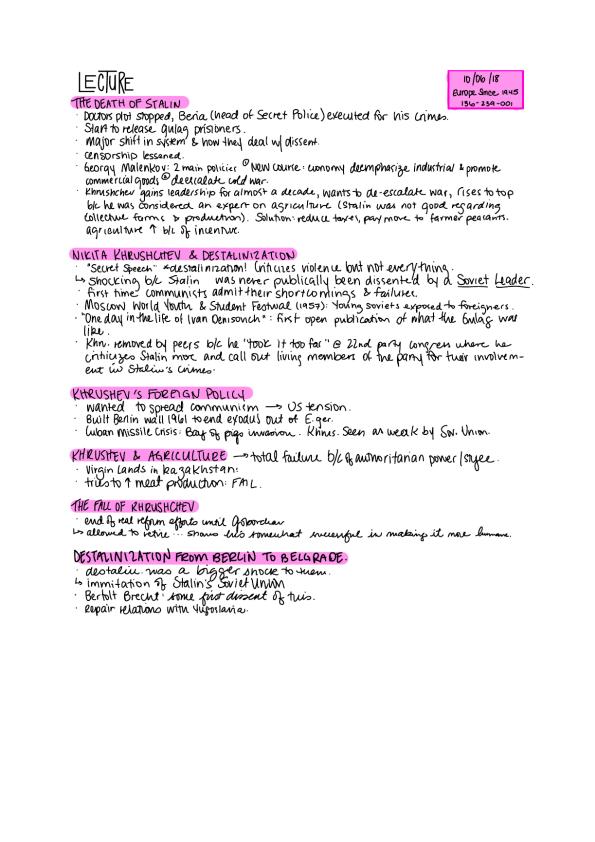 LECTURE
10/06/18
Europe Since 1945
136-239-001
THE DEATH OF STALIN
· Doctors plot stopped, Beria (head of Secret Police) executed for his crimes.
· Start to release gulag prisioners.
· major shift in system & how they deal w/ dissent.
· censorship lessened.
· Georgy Malenkov: 2 main policies ① NEW Course: economy deemphasize industrial & promote
commercial goods ② deescalate cold war.
· Khrushchev gains leadership for almost a decade, wants to de-escalate war, rises to top
b/c he was considered an expert on agriculture (Stalin was not good regarding
collective farms & production). Solution: reduce taxes, pay more to farmer peasants.
agriculture ↑ b/c of incentive.
NIKITA KHRUSHCHEV & DESTALINIZATION
· "Secret Speech" *destalinization! Criticizes violence but not everything.
↳ Shocking b/c Stalin was never publically been dissented by a Soviet Leader.
· First time communists admit their shortcomings & failures.
· Moscow World Youth & Student Festival (1957): Young Soviets exposed to foreigners.
· "One day in the life of Ivan Denisovich": First open publication of what the Gulag was
like.
· Khru. removed by peers b/c he "took it too far" @ 22nd party congress where he
criticizes Stalin more and call out living members of the party for their involvem-
ent in Stalin's crimes.
KHRUSHEV'S FOREIGN POLICY
· wanted to spread communism → US tension.
· Built Berlin wall 1961 to end exodus out of E.ger.
· Cuban Missile Crisis: Bay of pigs invasion. Khrus. Seen as weak by Sov. Union.
KHRUSHEV & AGRICULTURE → total failure b/c of authoritarian power/style.
· Virgin Lands in Kazakhstan:
· tries to ↑ meat production: FAIL.
THE FALL OF KHRUSHCHEV
· end of real reform efforts until Gorbachav
↳ allowed to retire... shows he's somewhat successful in making it more humane.
DESTALINIZATION FROM BERLIN TO BELGRADE.
· destalin. was a bigger shock to them.
↳ immitation of Stalin's Soviet Union
· Bertolt Brecht: some first dissent of this.
· Repair relations with Yugoslavia.